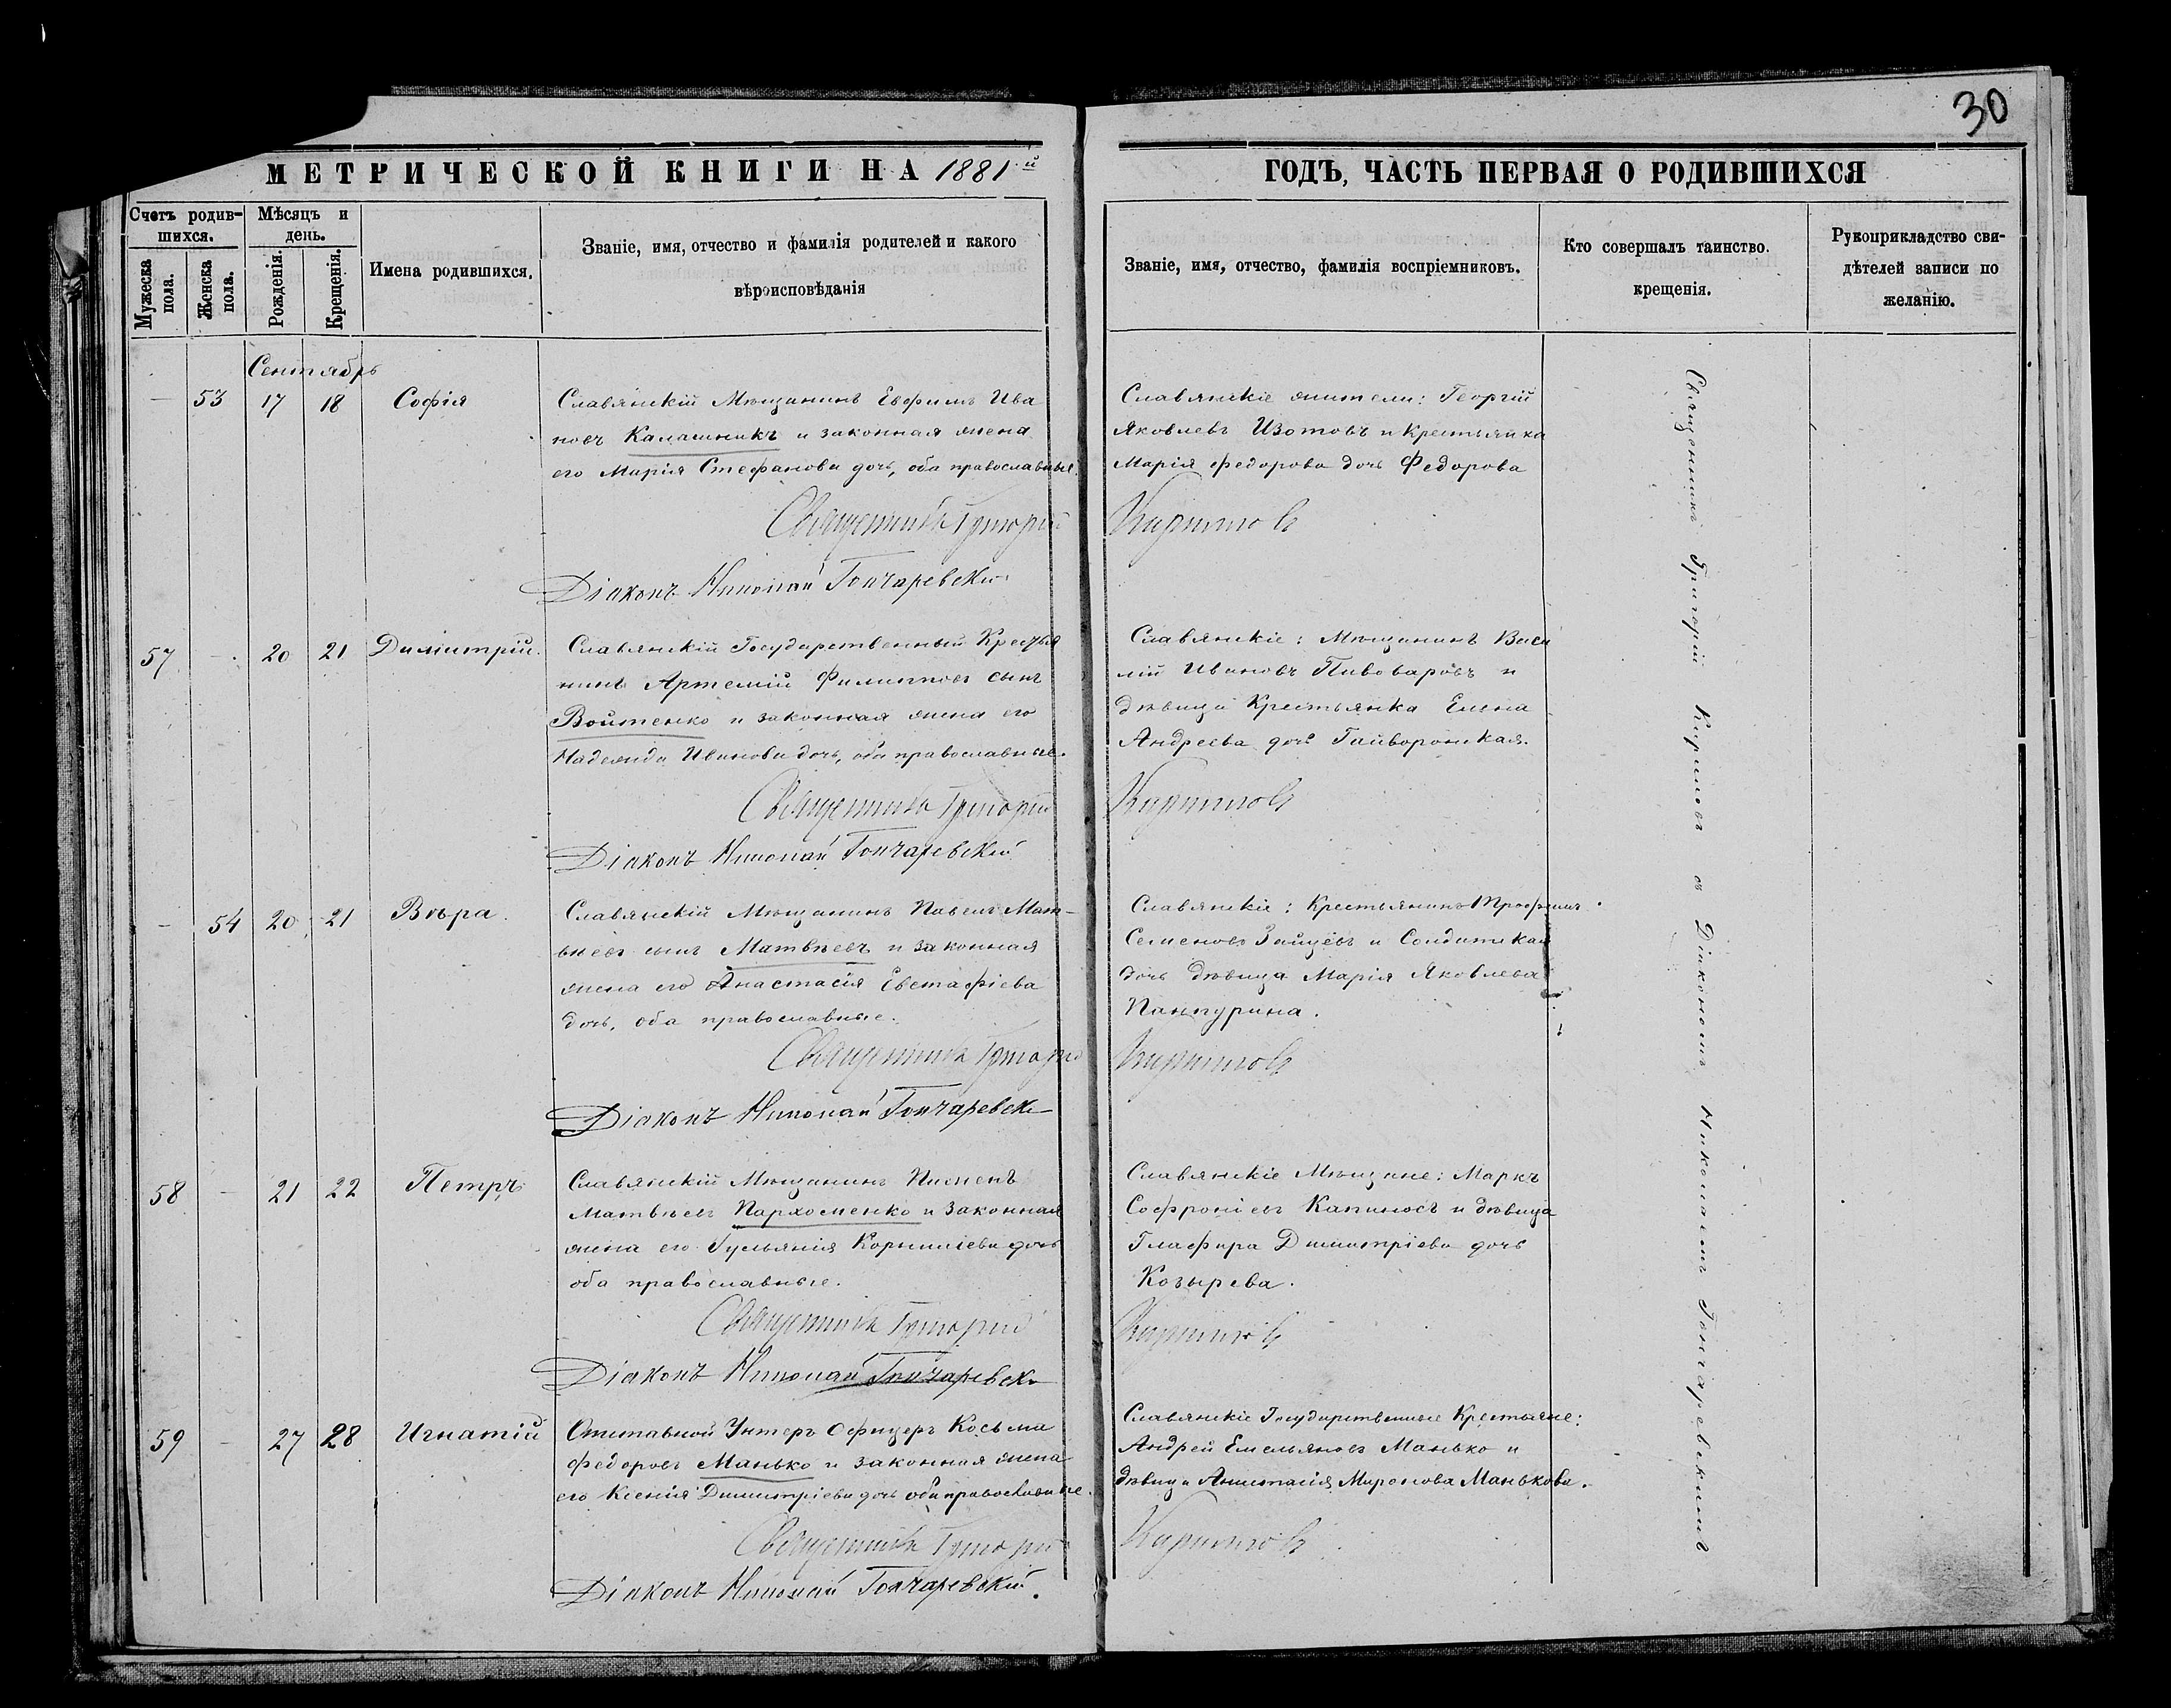 30
МЕТРИЧЕСКОЙ КНИГИ НА 1881й
ГОДЪ, ЧАСТЬ ПЕРВАЯ О РОДИВШИХСЯ
Счетъ родив-
шихся.
Мужеска
пола.
Женска
пола.
Мѣсяцъ и
день.
Рожденія.
Крещенія.
Имена родившихся.
Званіе, имя, отчество и фамилія родителей и какого
вѣроисповѣданія
Званіе, имя, отчество, фамилія воспріемниковъ.
Кто совершалъ таинство.
крещенія.
Рукоприкладство сви-
дѣтелей записи по
желанію.
Сентябрь
— 53 17 18 Софія
Славянскій Мѣщанинъ Евфимъ Ива
новъ Калашникъ и законная жена
его Марія Стефанова дочь, оба православные.
Славянскіе жители: Георгій
Яковлевъ Изотовъ и Крестьянка
Марія Федорова дочь Федорова
Священникъ Григорій Кириловъ
Діаконъ Николай Гончаревскій
57 — 20 21 Димитрій.
Славянскій Государственный Крестья
нинъ Артемій Филиповъ сынъ
Войтенко и законная жена его
Надежда Иванова дочь, оба православные.
Славянскіе: Мѣщанинъ Васи
лій Ивановъ Пивоваровъ и
дѣвица Крестьянка Елена
Андреева дочь Гайворонская.
Священникъ Григорій Кириловъ
Діаконъ Николай Гончаревскій
— 54 20 21 Вѣра.
Славянскій Мѣщанинъ Павелъ Мат-
вѣевъ сынъ Матвѣевъ и законная
жена его Анастасія Евстафіева
дочь, оба православные.
Славянскіе: Крестьянинъ Трофимъ
Семеновъ Зайцевъ и Солдатская
дочь дѣвица Марія Яковлева
Панпурина.
Священникъ Григорій Кириловъ
Діаконъ Николай Гончаревск
58 — 21 22 Петръ
Славянскій Мѣщанинъ Пименъ
Матвѣевъ Пархоменко и законная
жена его Гульянія Корниліева дочь
оба православные.
Славянскіе Мѣщане: Маркъ
Софроніевъ Капиносъ и дѣвица
Глафира Димитріева дочь
Козырева.
Священникъ Григорій Кириловъ
Діаконъ Николай Гончаревск
59 — 27 28 Игнатій
Отставной Унтеръ Офицеръ Косьма
Федоровъ Манько и законная жена
его Ксенія Димитріева дочь оба православные.
Славянскіе Государственные Крестьяне:
Андрей Емельяновъ Манько и
дѣвица Анастасія Миронова Манькова.
Священникъ Григорій Кириловъ
Діаконъ Николай Гончаревскій.
Священникъ Григорій Кириловъ съ Діакономъ Николаемъ Гончаревскимъ